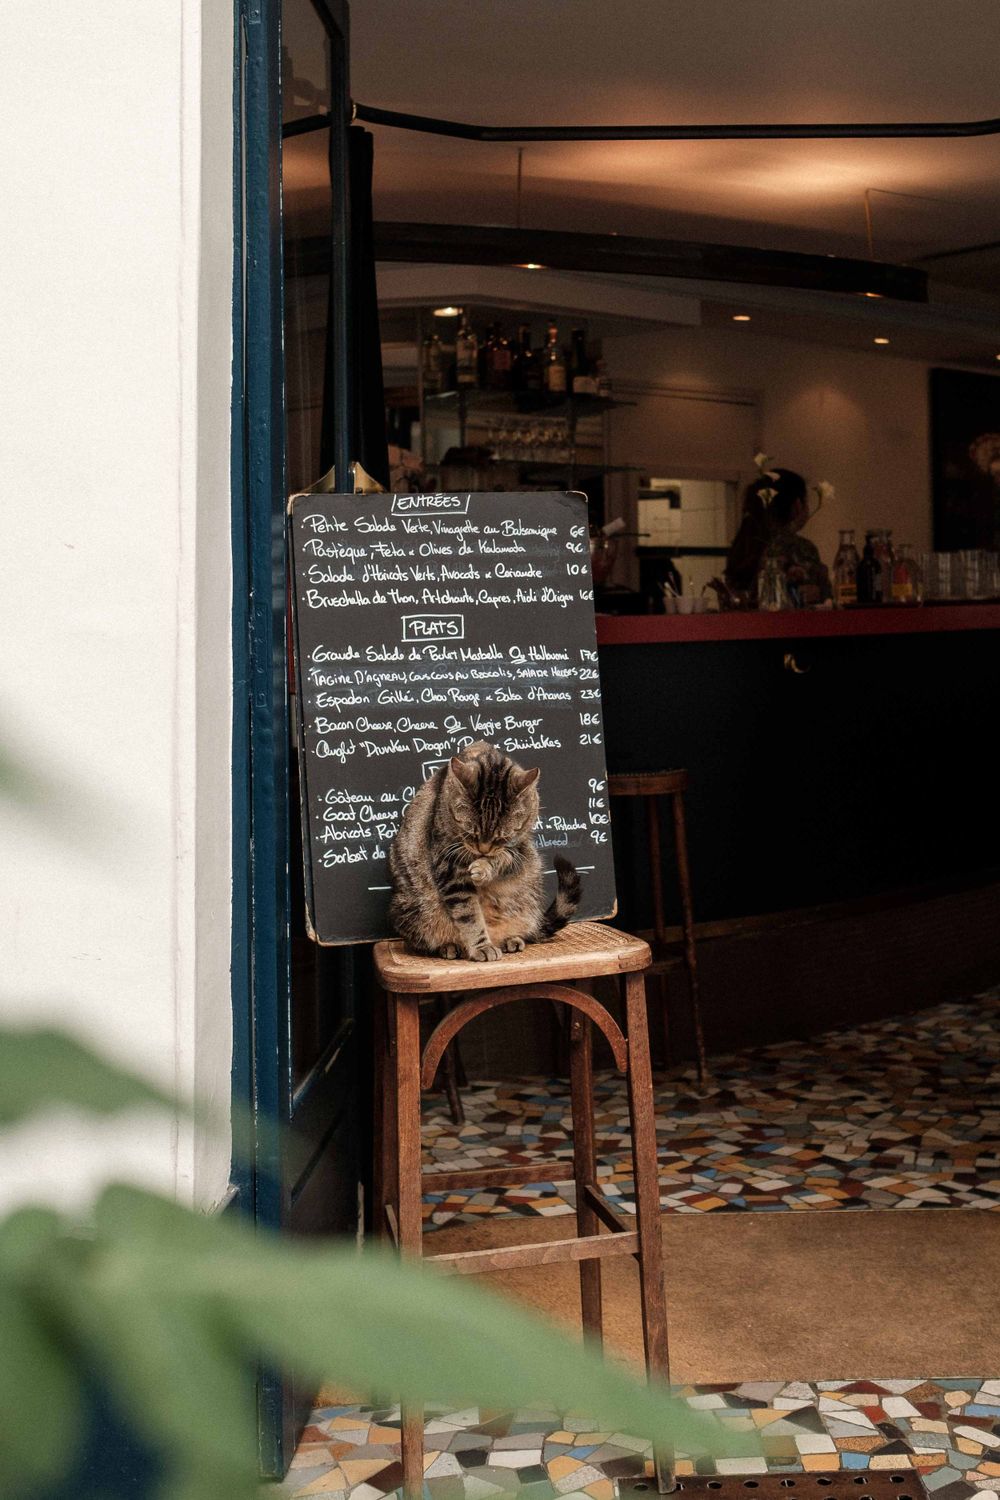 ENTRÉES
· Petite Salade Verte, Vinagrette au Balsamique 6€
· Pastèque, Feta & Olives de Kalamata 9€
· Salade d'Haricots Verts, Avocats & Coriandre 10€
· Bruschetta de Thon, Artichauts, Capres, Aioli d'Origan 16€
PLATS
· Grande Salade de Poulet Marbella Ou Halloumi 17€
· TAGINE D'AGNEAU, COUSCOUS AU BROCOLIS, SALADE HERBES 22€
· Espadon Grillé, Chou Rouge & Salsa d'Ananas 23€
· Bacon Cheese, Cheese Ou Veggie Burger 18€
· "Drunken Dragon", & Shiitakes 21€
D
· Gâteau au 9€
· Goat Cheese 11€
· Abricots & Pistache 10€
· Sorbet de 9€